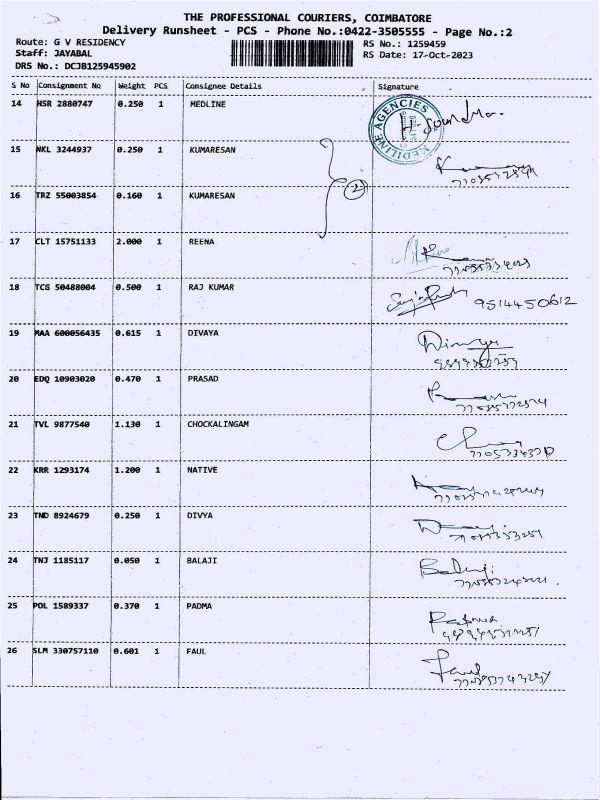 THE PROFESSIONAL COURIERS, COIMBATORE
Delivery Runsheet - PCS - Phone No.:0422-3505555 - Page No.:2
Route: G V RESIDENCY RS No.: 1259459
Staff: JAYABAL RS Date: 17-Oct-2023
DRS No.: DCJB125945902
S No Consignment No Weight PCS Consignee Details Signature
14 HSR 2880747 0.250 1 MEDLINE
15 NKL 3244937 0.250 1 KUMARESAN
16 TRZ 55003854 0.160 1 KUMARESAN
17 CLT 15751133 2.000 1 REENA
18 TCG 50488004 0.500 1 RAJ KUMAR 9514450612
19 MAA 600056435 0.615 1 DIVAYA
20 EDQ 10903020 0.470 1 PRASAD
21 TVL 9877540 1.130 1 CHOCKALINGAM
22 KRR 1293174 1.200 1 NATIVE
23 TND 8924679 0.250 1 DIVYA
24 TNJ 1185117 0.050 1 BALAJI
25 POL 1589337 0.370 1 PADMA
26 SLM 330757110 0.601 1 FAUL